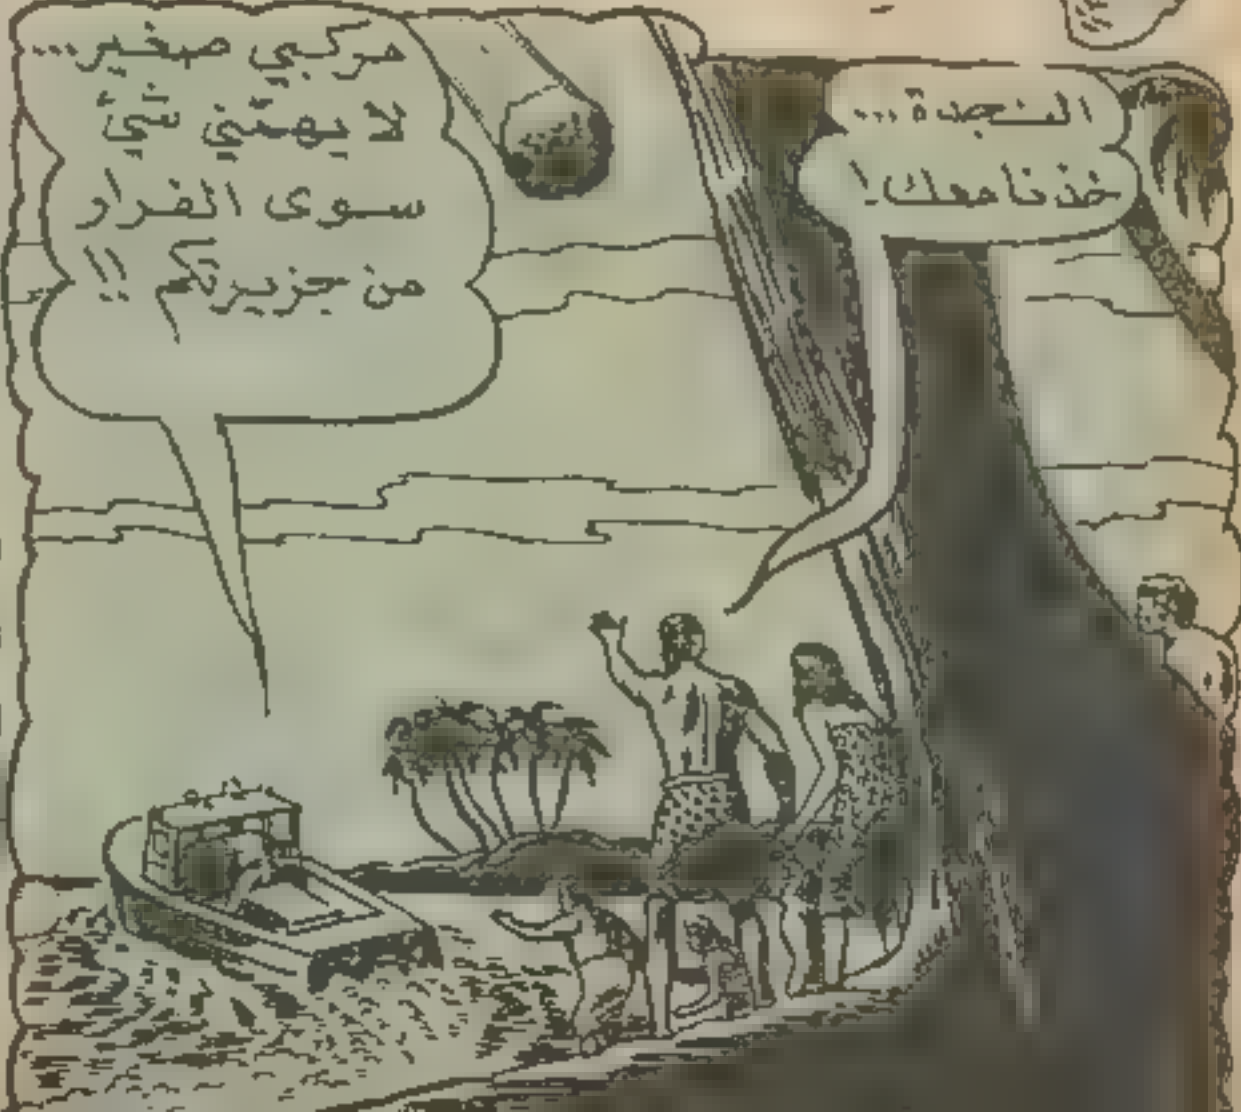 النجدة...
خذنا معك!
مركبي صغير...
لا يهمّني شيئ
سوى الفرار
من جزيرتكم !!